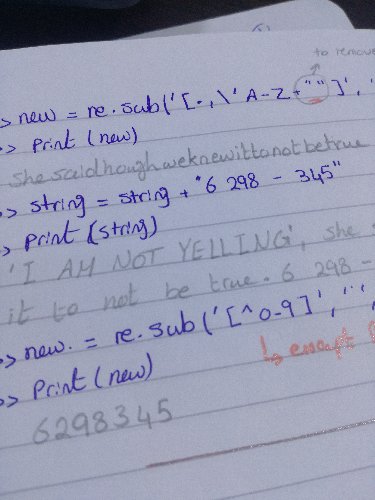 to remove
> new = re.sub('[.,\'A-Z+""]', '
>> print (new)
shesaidhoughweknewittonotbetrue
>> string = string + "6 298 - 345"
>> print (string)
'I AM NOT YELLING', she
it to not be true. 6 298 -
>> new. = re.sub('[^0-9]', '',
↳ except
>> print (new)
6298345